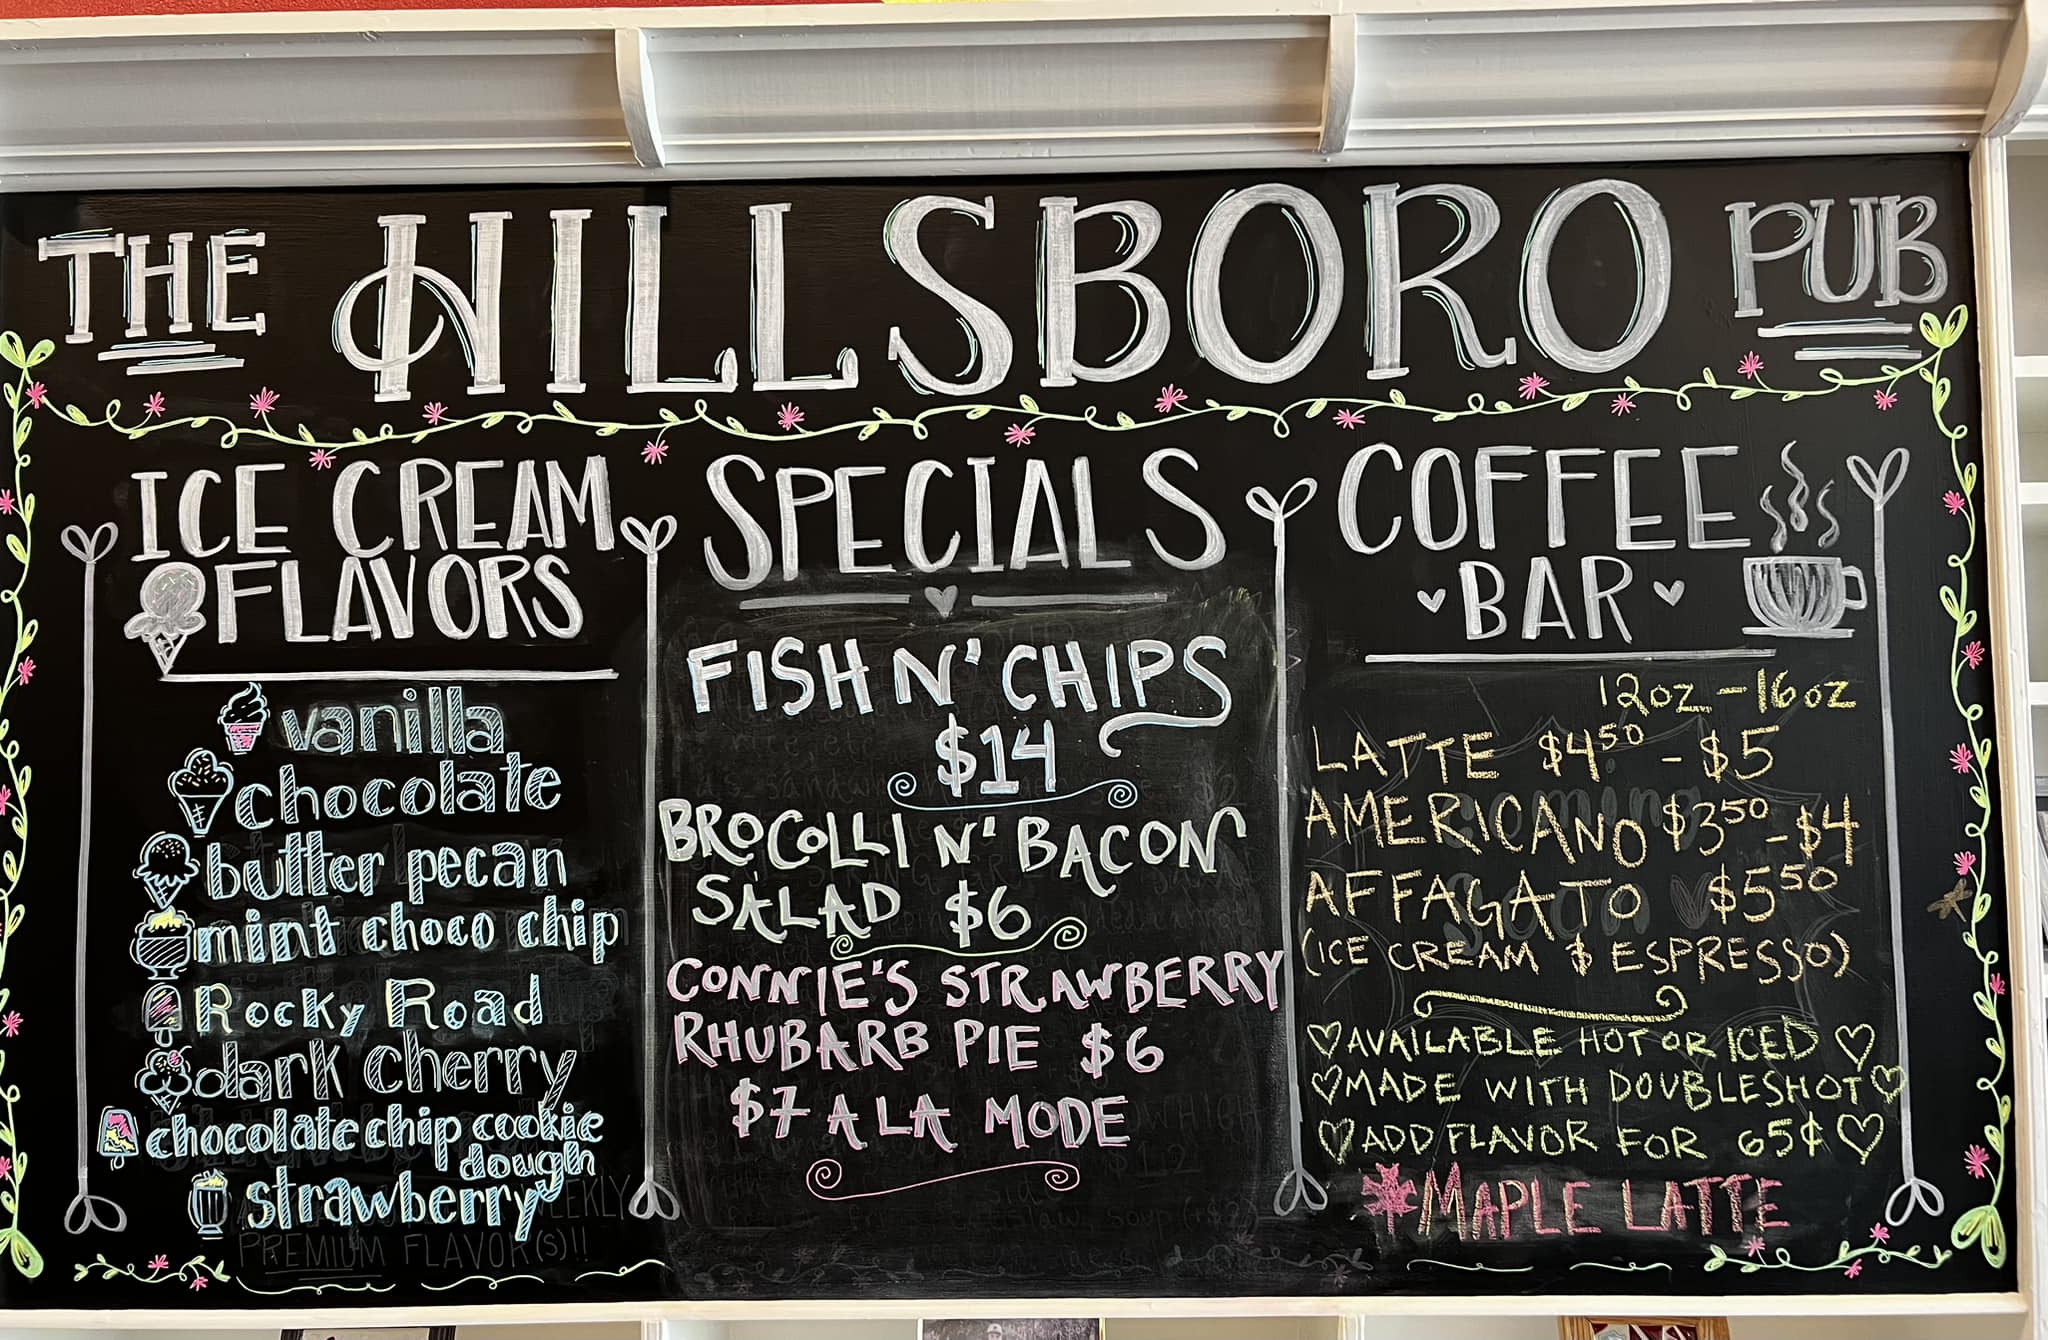 THE HILLSBORO PUB
ICE CREAM
FLAVORS
vanilla
chocolate
butter pecan
mint choco chip
Rocky Road
dark cherry
chocolate chip cookie
dough
strawberry
PREMIUM FLAVOR(S)!!
SPECIALS
FISH N' CHIPS
$14
BROCOLLI N' BACON
SALAD $6
CONNIE'S STRAWBERRY
RHUBARB PIE $6
$7 A LA MODE
COFFEE
BAR
12oz - 16oz
LATTE $450 - $5
AMERICANO $350 - $4
AFFAGATO $550
(ICE CREAM & ESPRESSO)
AVAILABLE HOT OR ICED
MADE WITH DOUBLESHOT
ADD FLAVOR FOR 65¢
MAPLE LATTE